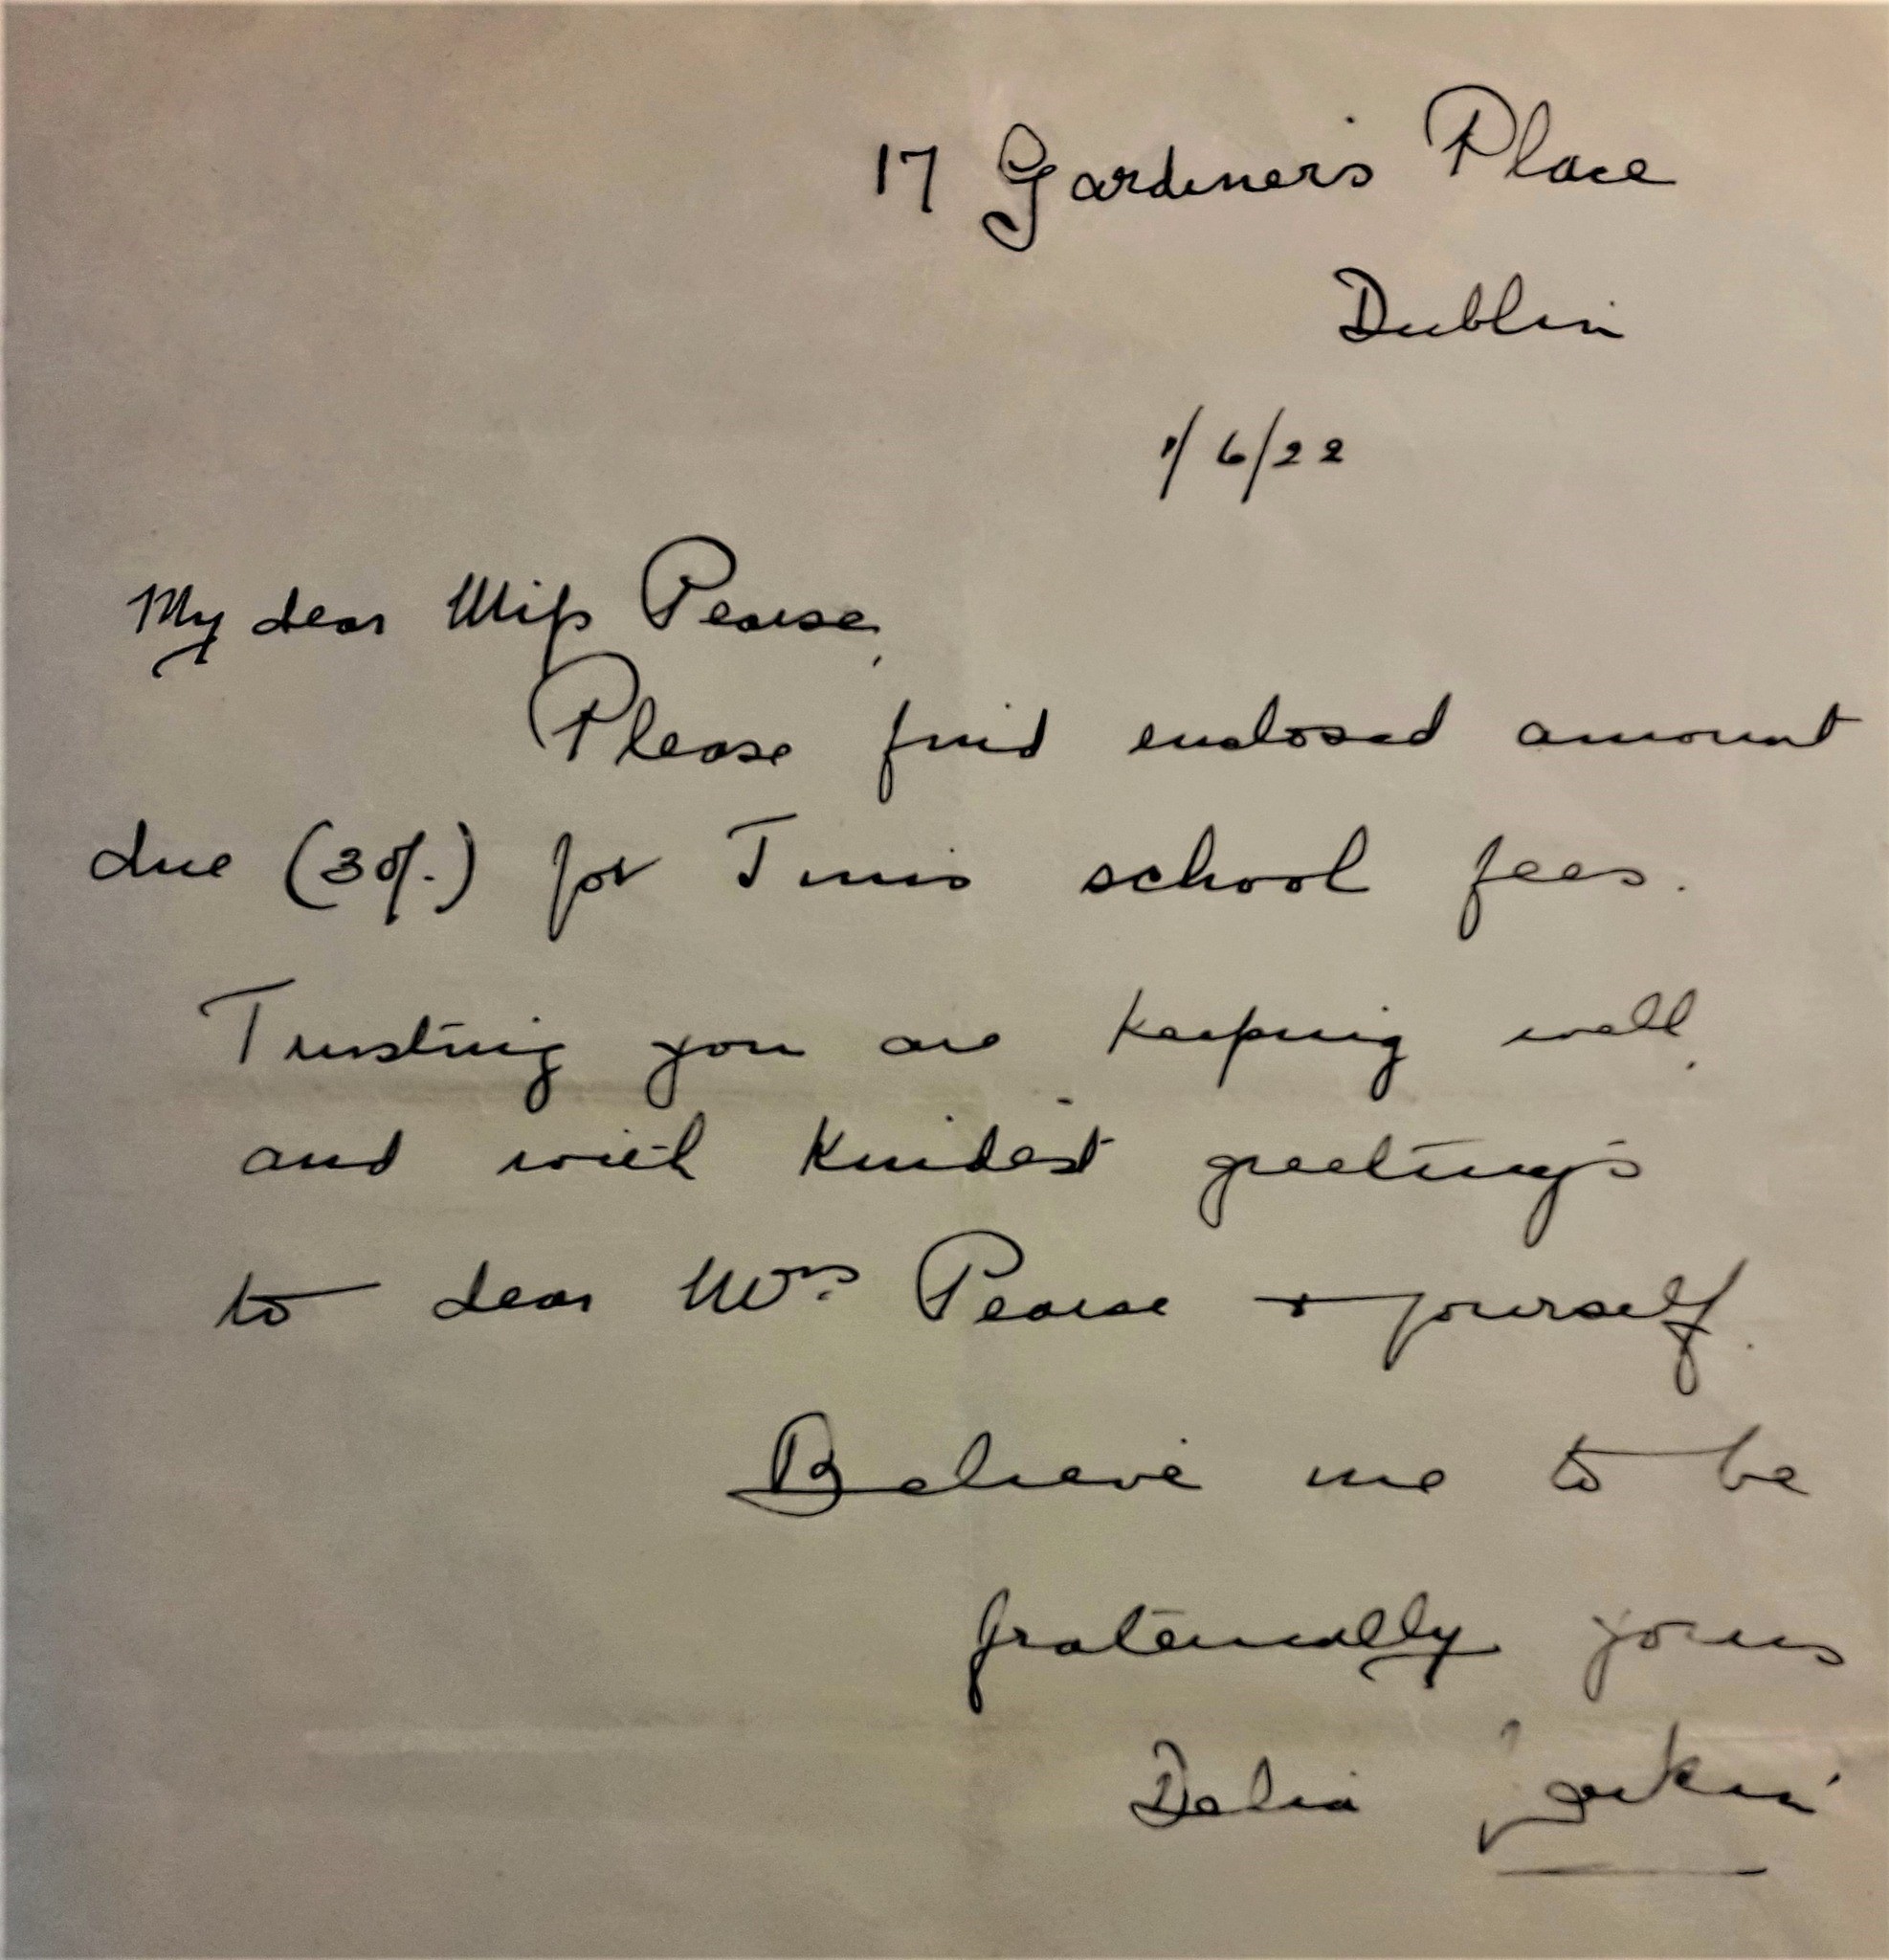 17 Gardiner's Place
Dublin
1/6/22
My dear Miss Pearse,
Please find enclosed amount
due (30/-) for Finis school fees.
Trusting you are keeping well,
and with kindest greetings
to dear Mrs. Pearse + yourself.
Believe me to be
fraternally yours
Delia Larkin